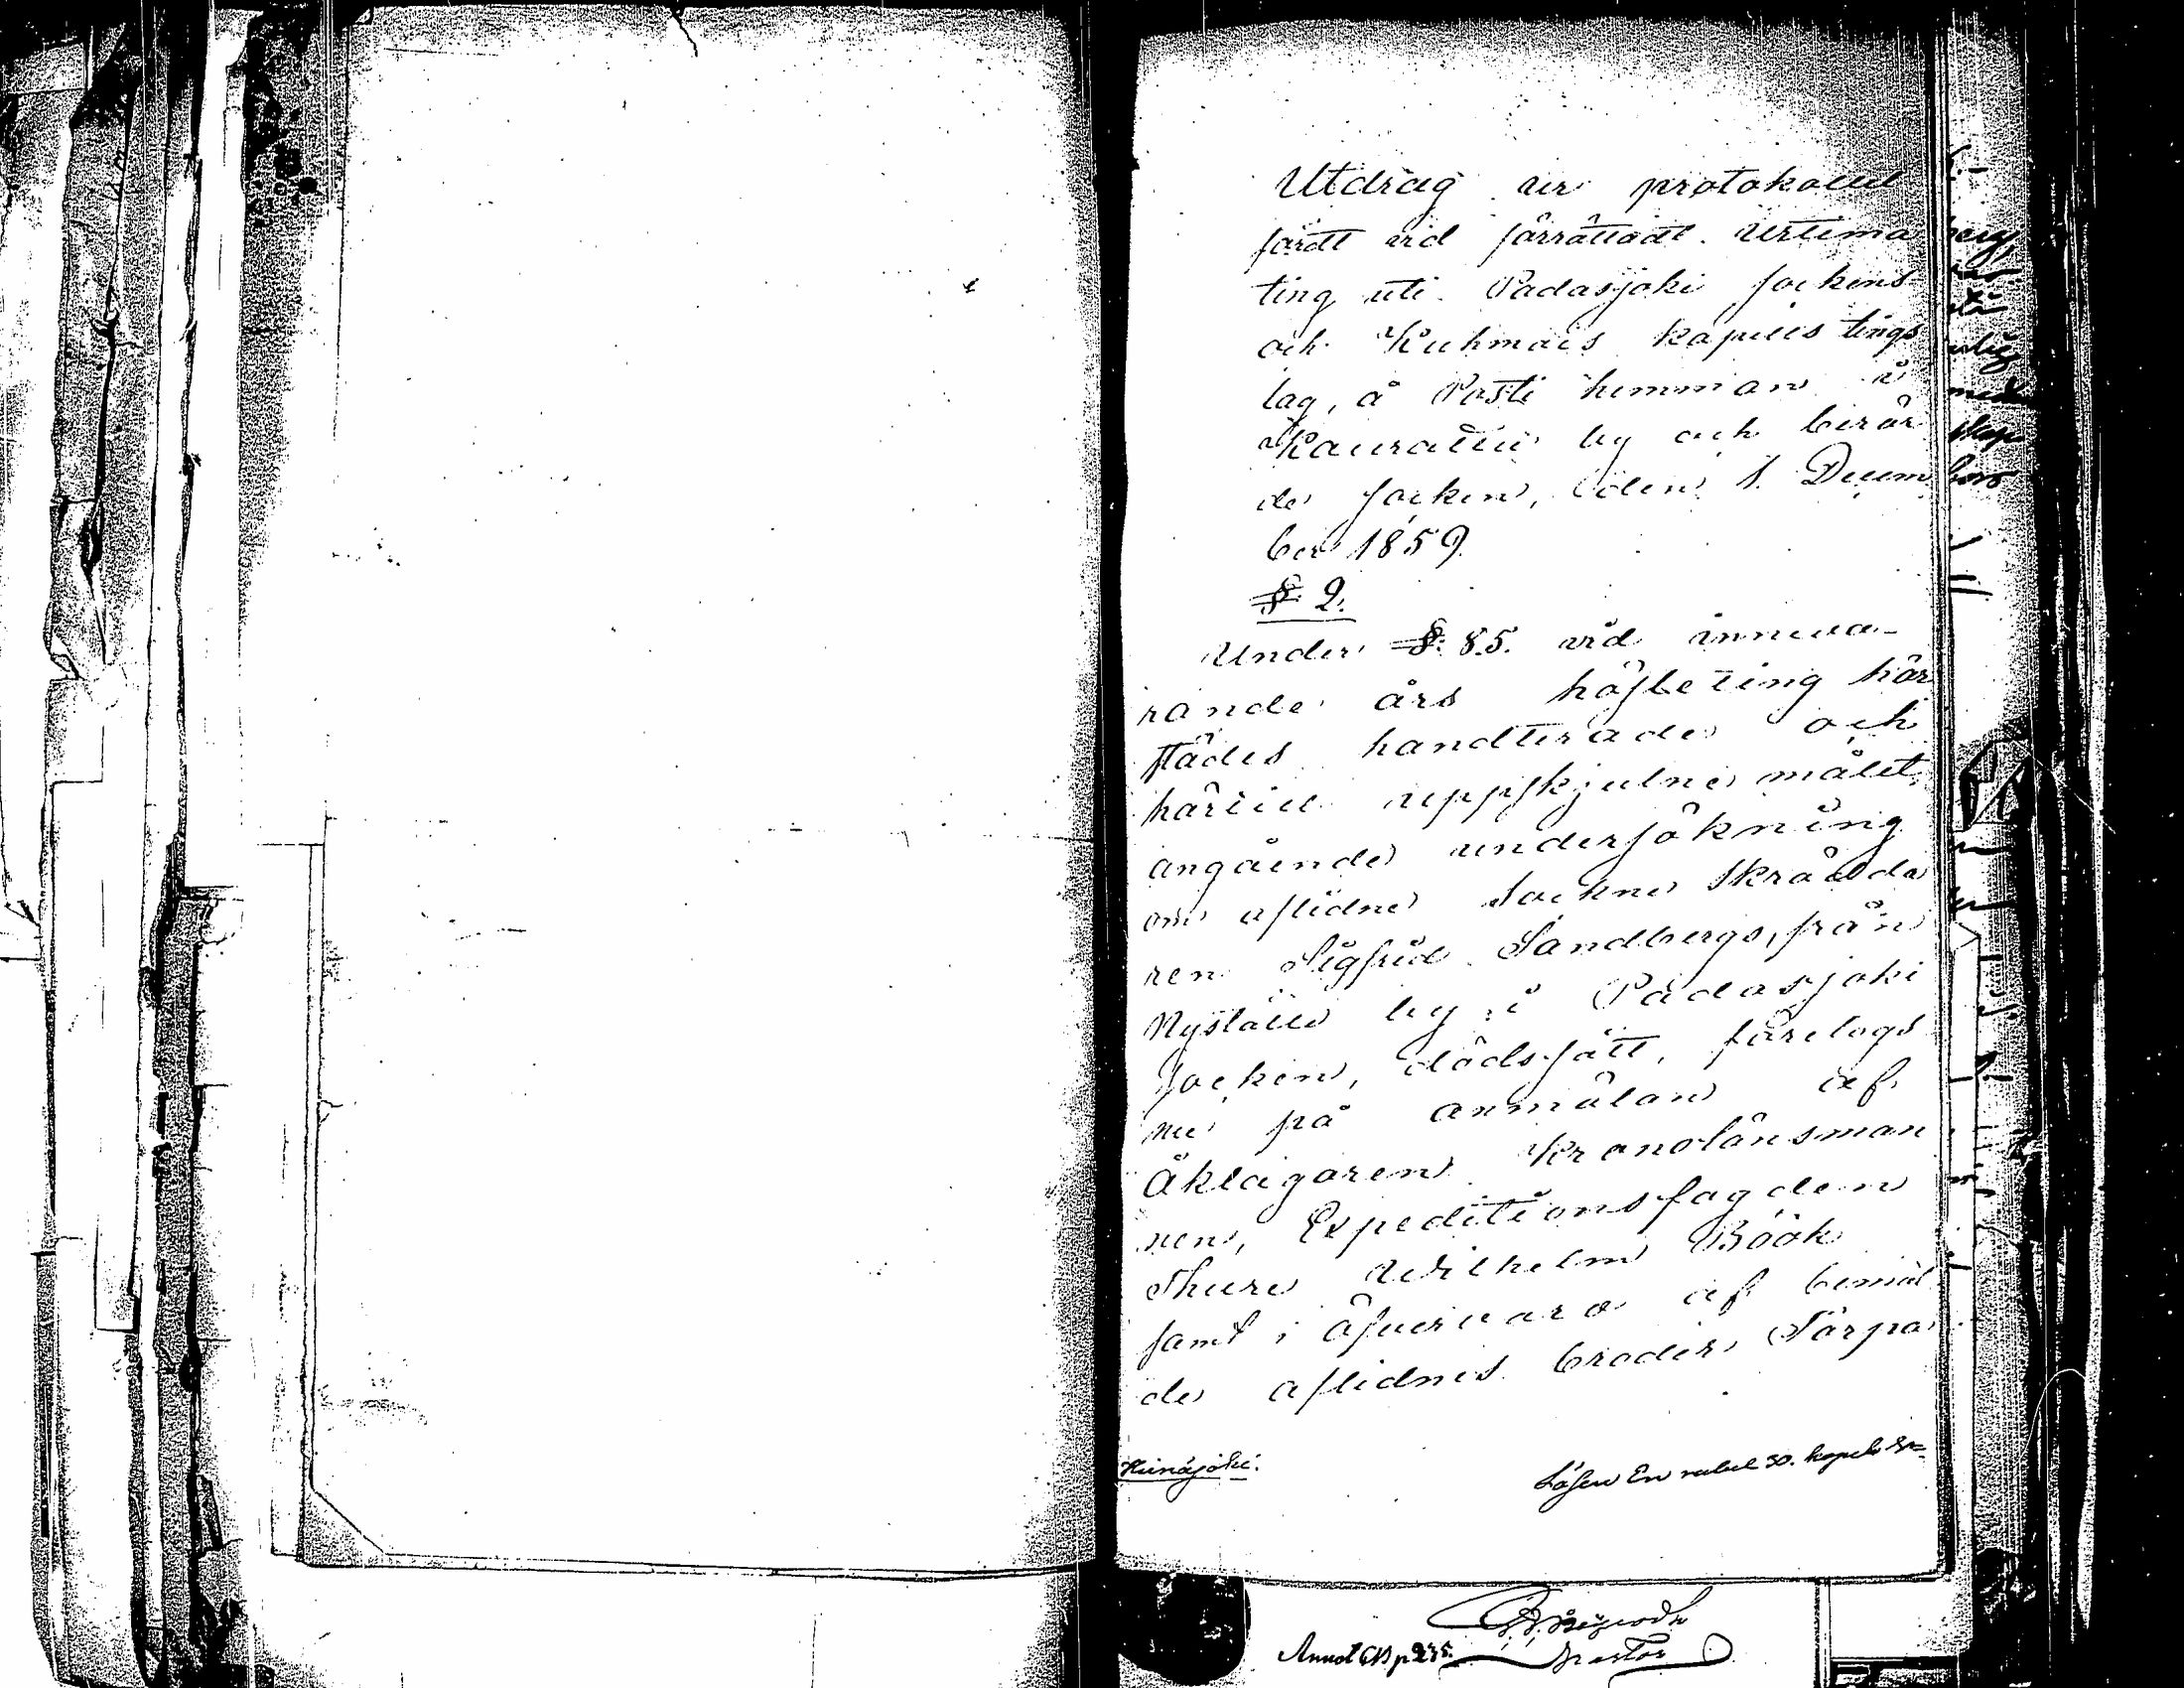 Utdrag ur protokollet
fördt vid förrättadt Urtima
ting uti Padasjoki sockens
och Kuhmois kapells tings
lag, å Pasti hemman i
Kauratu by och berör
de socken, den 1. Decem
ber 1859.
§ 2.
Under § 85. vid inneva-
rande års höste ting här
städes handterade och
härtill uppskjutne målet,
angående undersökning
om aflidne Sockne Skrädda
ren Sigfrid Sandbergs, från
Nystölä by i Padasjoki
socken, dödssätt, företogs
nu på anmälan af
Åklagaren Kronolänsman
nen, Expeditionsfogden
Thure Wilhelm Böök
samt i öfvervaro af bemäl
de aflidnes broder, Torpa
Lösen En rubel 30. kopek Sr
Annot CB p 235.
Pastor